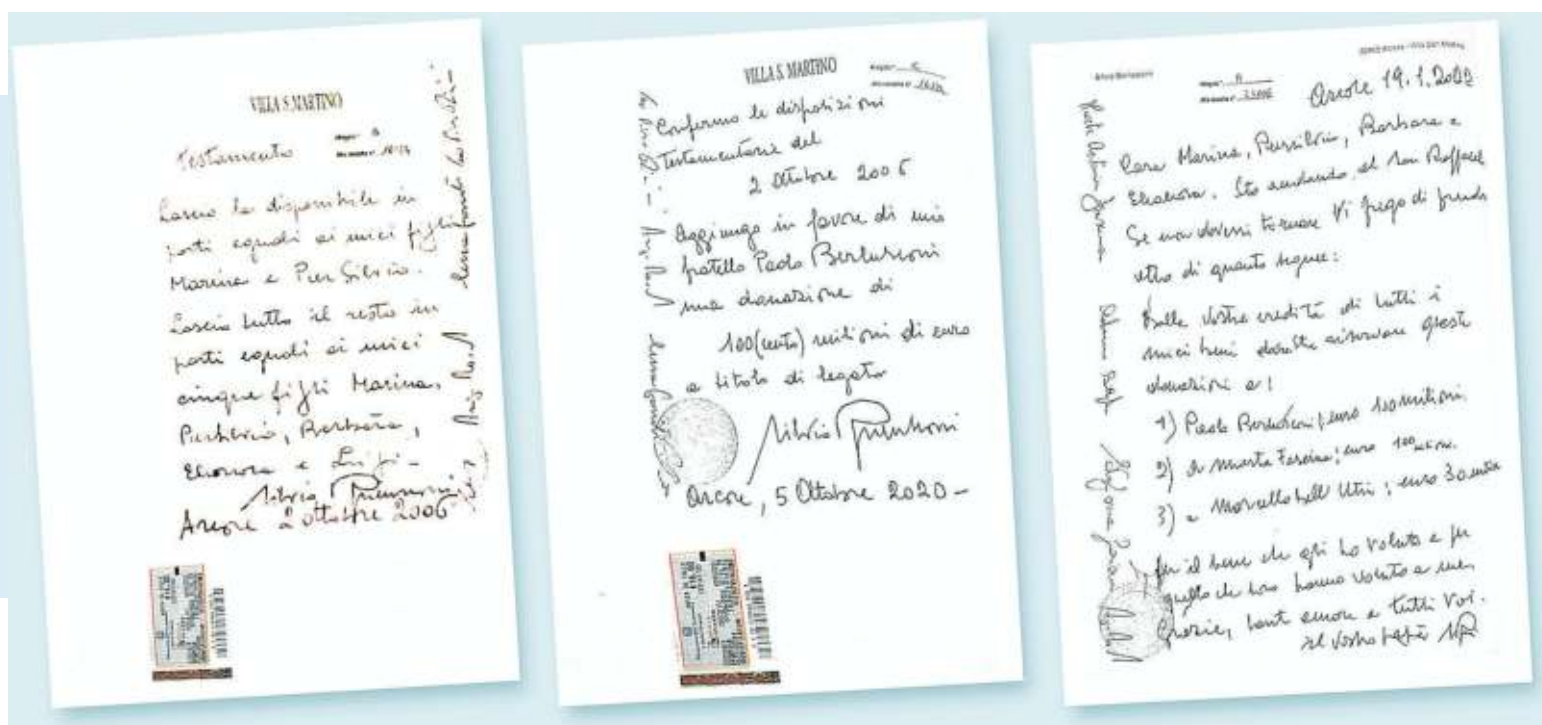 VILLA S. MARTINO
Testamento
Lascio la disponibile in
parti eguali ai miei figli
Marina e Pier Silvio.
Lascio tutto il resto in
parti eguali ai miei
cinque figli Marina,
Piersilvio, Barbara,
Eleonora e Luigi -
Silvio Berlusconi
Arcore 2 ottobre 2006
VILLA S. MARTINO
Confermo le disposizioni
Testamentarie del
2 Ottobre 2006
Aggiungo in favore di mio
fratello Paolo Berlusconi
una donazione di
100 (cento) milioni di euro
a titolo di legato
Silvio Berlusconi
Arcore, 5 Ottobre 2020 -
Silvio Berlusconi
Arcore 19.1.2022
Cara Marina, Piersilvio, Barbara e
Eleonora. Sto andando al San Raffaele
Se non dovessi tornare Vi prego di prende
atto di quanto segue:
Dalle vostre eredità di tutti i
miei beni dovreste riservare queste
donazioni a:
1) Paolo Berlusconi; euro 100 milioni
2) a Marta Fascina; euro 100 milioni
3) a Marcello Dell'Utri; euro 30 milioni
per il bene che gli ho voluto e per
quello che loro hanno voluto a me.
Grazie, tanto amore a tutti Voi.
il vostro papà